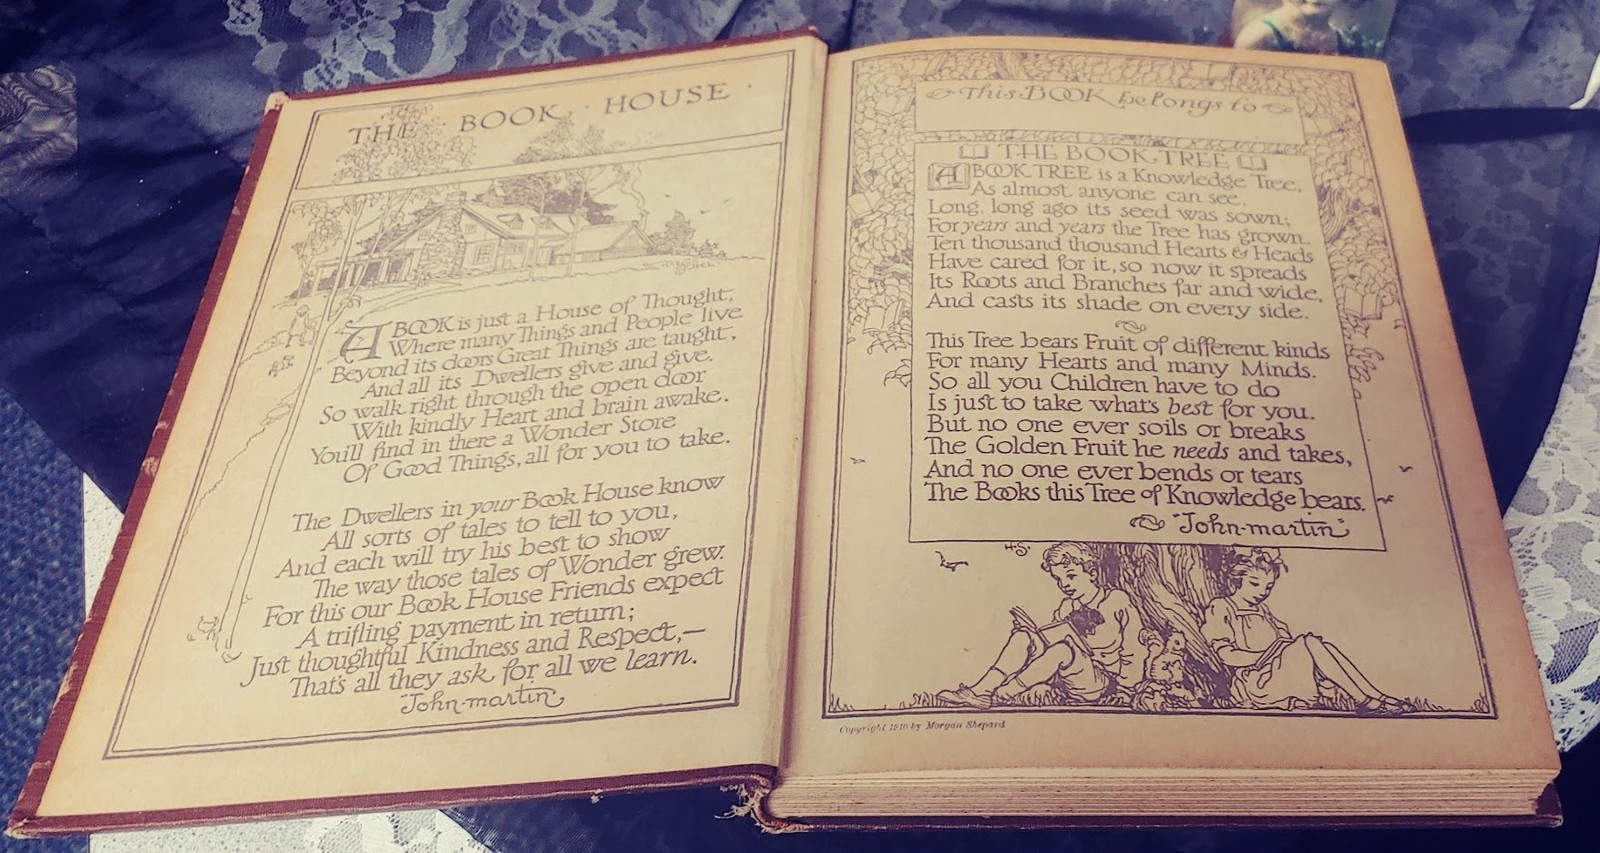 THE · BOOK · HOUSE ·
A BOOK is just a House of Thought,
Where many Things and People live
Beyond its doors Great Things are taught,
And all its Dwellers give and give.
So walk right through the open door
With kindly Heart and brain awake.
You'll find in there a Wonder Store
Of Good Things, all for you to take.
The Dwellers in your Book House know
All sorts of tales to tell to you,
And each will try his best to show
The way those tales of Wonder grew.
For this our Book House Friends expect
A trifling payment in return;
Just thoughtful Kindness and Respect,—
That's all they ask for all we learn.
"John-martin"
This BOOK belongs to
THE BOOK TREE
A BOOK TREE is a Knowledge Tree,
As almost anyone can see.
Long, long ago its seed was sown;
For years and years the Tree has grown.
Ten thousand thousand Hearts & Heads
Have cared for it, so now it spreads
Its Roots and Branches far and wide,
And casts its shade on every side.
This Tree bears Fruit of different kinds
For many Hearts and many Minds.
So all you Children have to do
Is just to take what's best for you.
But no one ever soils or breaks
The Golden Fruit he needs and takes,
And no one ever bends or tears
The Books this Tree of Knowledge bears.
"John-martin"
HS.
Copyright 1910 by Morgan Shepard